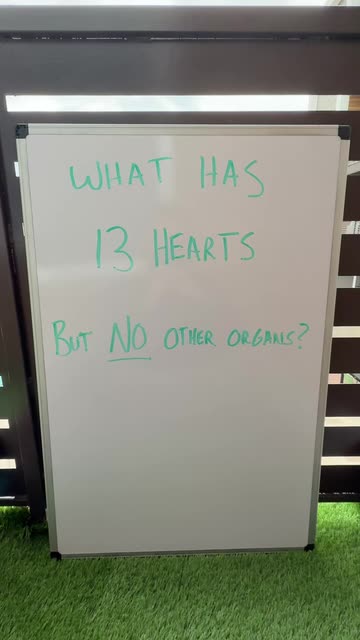 WHAT HAS
13 HEARTS
BUT NO OTHER ORGANS?